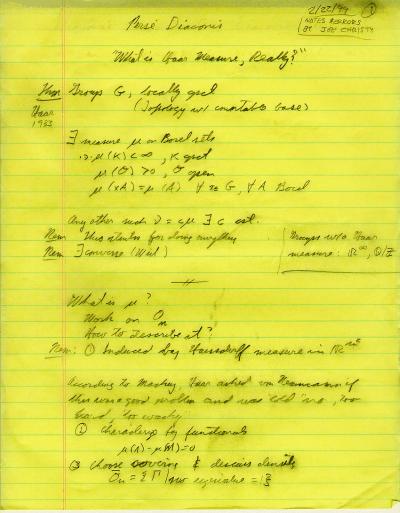 2/22/99 ①
NOTES & ERRORS
BY JOE CHRISTY
Persi Diaconis
"What is Haar Measure, Really?"
Thm Group G, locally cpct
Haar (Topology w/ countable base)
1933
∃ measure μ on Borel sets
μ(K) < ∞, K cpct
μ(O) > 0, O open
μ(xA) = μ(A) ∀ x ∈ G, ∀ A Borel
Any other such ν = cμ ∃ c cst.
Rem this for doing everything
Rem ∃ converse (Weil)
Groups w/o Haar
measure: ℝ^∞, ℚ/ℤ
What is μ?
Work on O_m
How to describe it?
Rem: ① Induced by Hausdorff measure in ℝ
According to Mackey, Haar asked von Neumann if
this was a good problem and was told "no, too
hard, too wacky"
① characterize by functionals
② choose covering & discuss density